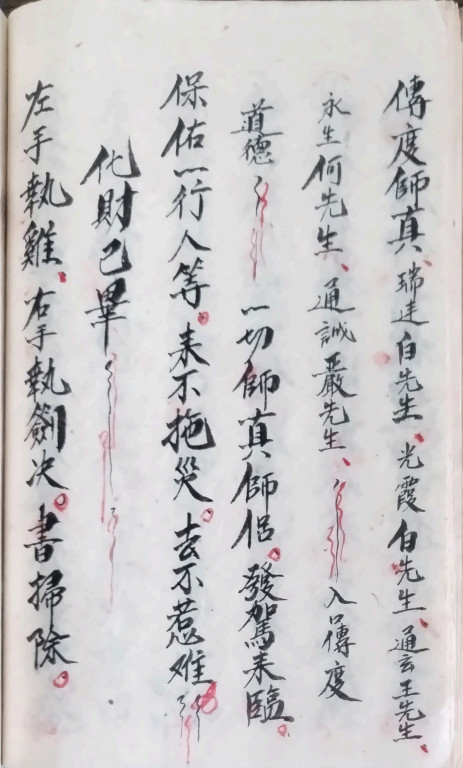 傳度師真、瑞達白先生、光霞白先生、通云王先生、
永生何先生、通誠嚴先生、入口傳度
道德 一切師真師侶。發駕來臨。
保佑一行人等。来不拖災。去不惹难
化財已畢
左手執雞、右手執劍决。書掃除。